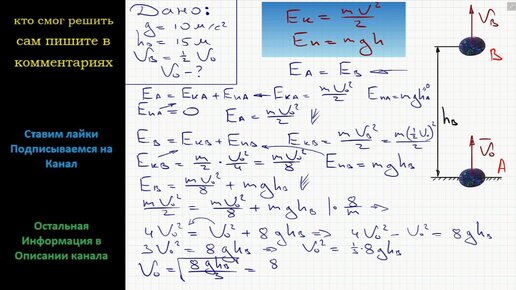 кто смог решить
сам пишите в
комментариях
Ставим лайки
Подписываемся на
Канал
Остальная
Информация в
Описании канала
Дано:
g = 10 м/с²
h_B = 15 м
V_B = ½ V₀
V₀ – ?
E_к = mV²/2
E_п = mgh
E_A = E_B
E_A = E_кA + E_пA E_кA = mV₀²/2 E_пA = mgh_A⁼⁰
E_пA = 0 E_A = mV₀²/2
E_B = E_кB + E_пB E_кB = mV_B²/2 = m(½V₀)²/2
E_кB = m/2 · V₀²/4 = mV₀²/8 E_пB = mgh_B
E_B = mV₀²/8 + mgh_B
mV₀²/2 = mV₀²/8 + mgh_B | · 8/m ⇒
4V₀² = V₀² + 8gh_B ⇒ 4V₀² – V₀² = 8gh_B
3V₀² = 8gh_B ⇒ V₀² = ⅓·8gh_B
V₀ = √(8gh_B/3) = 8
V_B
B
h_B
V₀
A